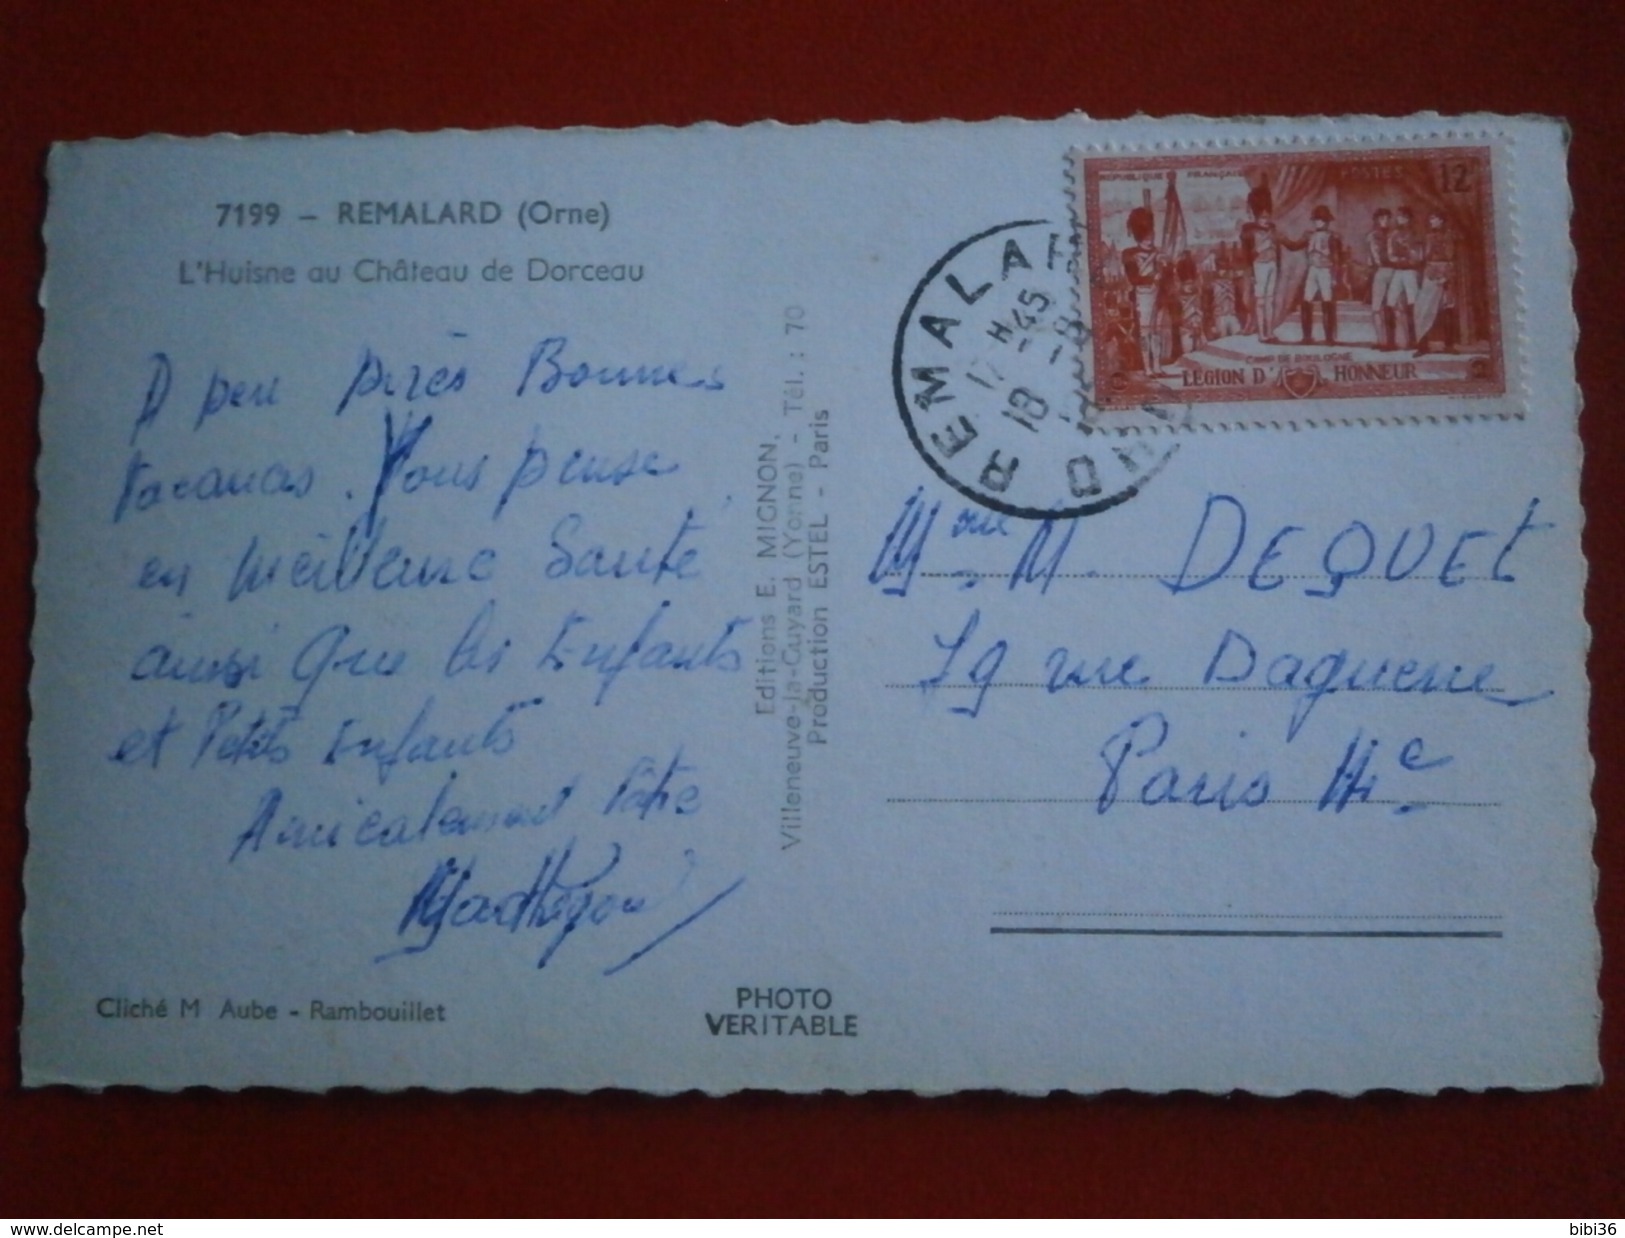 7199 – REMALARD (Orne)
L'Huisne au Château de Dorceau
A peu près Bonnes
Vacances. Vous pense
en meilleure Santé
ainsi Que les Enfants
et Petits Enfants
Amicalement Votre
Cliché M Aube - Rambouillet
Editions E. MIGNON,
Villeneuve-la-Guyard (Yonne) - Tél. : 70
Production ESTEL - Paris
PHOTO
VERITABLE
REPUBLIQUE FRANÇAISE POSTES 12F
CAMP DE BOULOGNE
LEGION D' HONNEUR
REMALARD
45
18
Mme M. DEQUET
19 rue Daguerre
Paris 14e
delcampe.net
bibi36